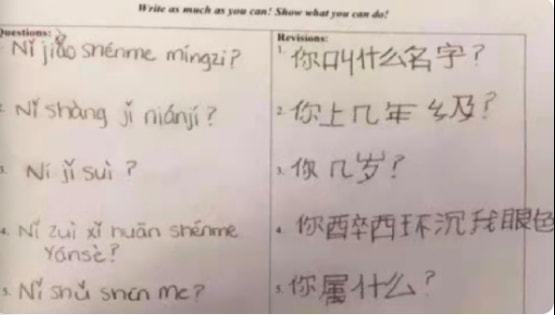 Write as much as you can! Show what you can do!
Questions:
Revisions:
Nǐ jiào shénme míngzi?
1. 你叫什么名字?
2. Nǐ shàng jǐ niánjí?
2. 你上几年级?
3. Ní jǐ suì ?
3. 你几岁?
4. Nǐ zuì xǐ huān shénme
yánsè?
4. 你醉西环沉我眼色
5. Nǐ shǔ shén me?
5. 你属什么?